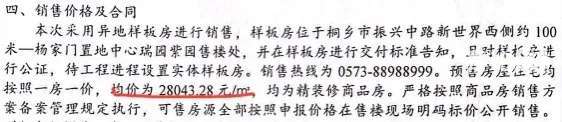 四、销售价格及合同
本次采用异地样板房进行销售，样板房位于桐乡市振兴中路新世界西侧约 100
米—杨家门置地中心瑞园紫园售楼处，并在样板房进行交付标准告知，且对样板房进
行公证，待工程进程设置实体样板房。销售热线为 0573-88988999。预售房屋住宅均
按照一房一价，均价为 28043.28 元/㎡，均为精装修商品房。严格按照商品房销售方
案备案管理规定执行，可售房源全部按照申报价格在售楼现场明码标价公开销售。